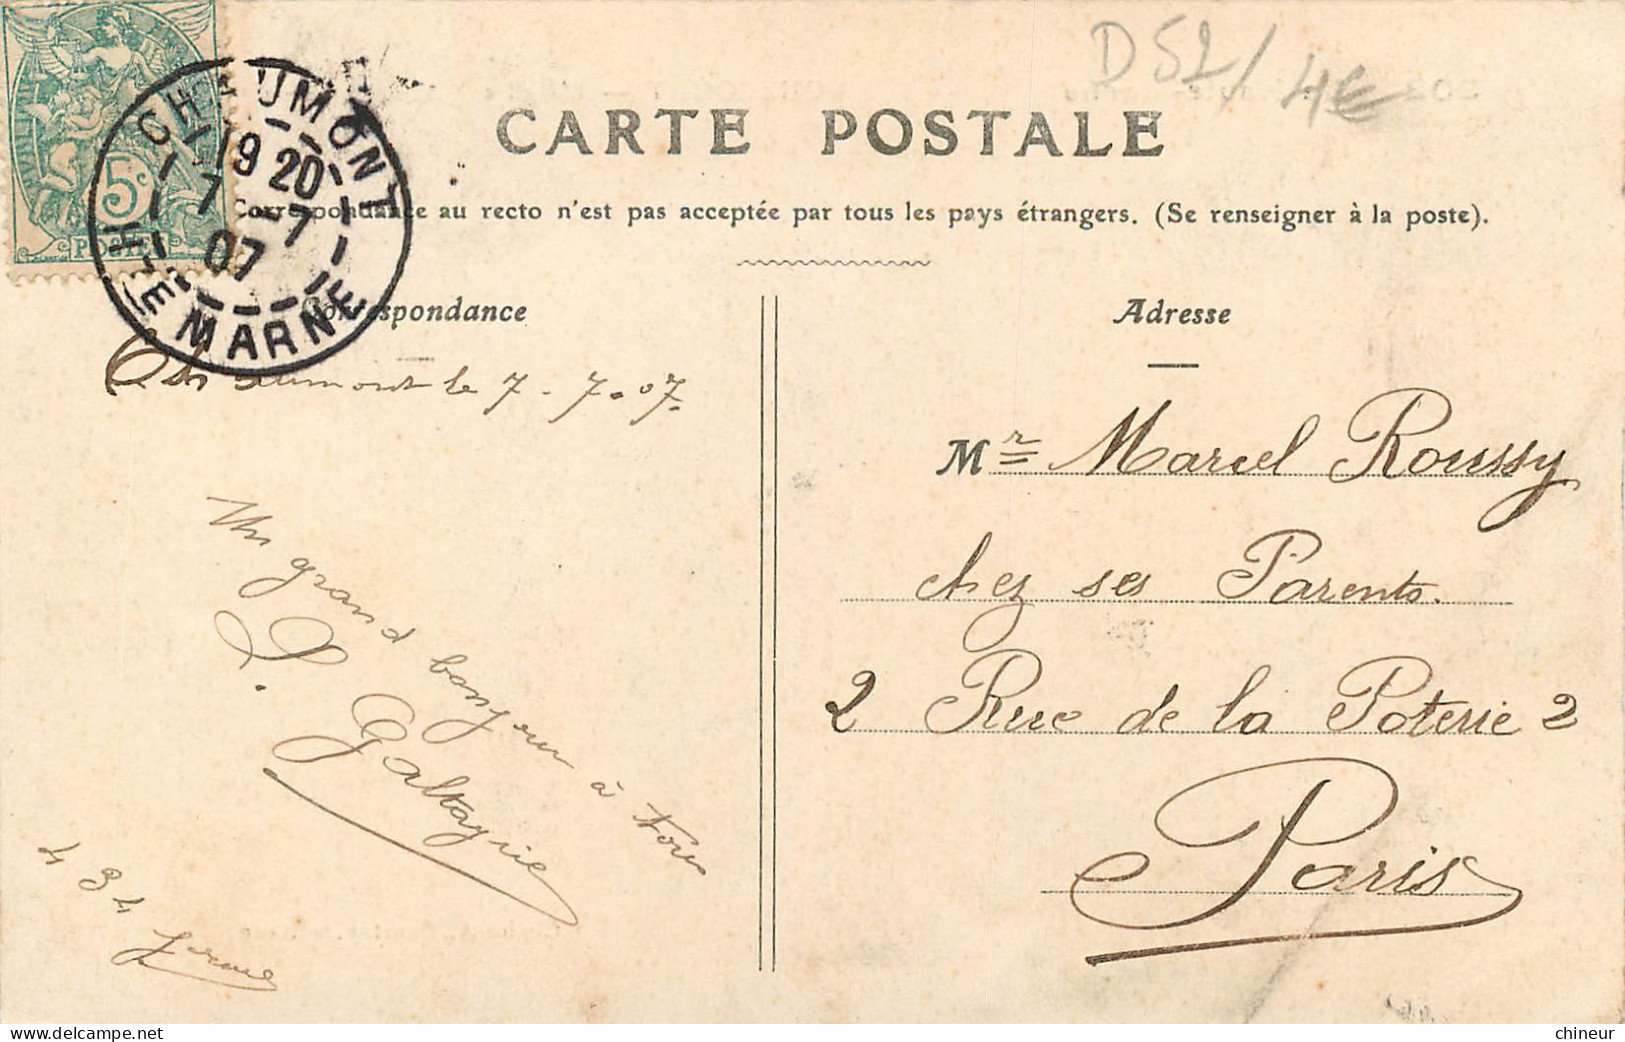 D52/4€
CARTE POSTALE
Correspondance au recto n'est pas acceptée par tous les pays étrangers. (Se renseigner à la poste).
5c
POSTES
CHAUMONT
19 20
7 - 7
07
HTE MARNE
Correspondance
Adresse
Chaumont le 7 - 7 - 07.
Un grand bonjour à tous
L. Galtayrie
434
Mr Marcel Roussy
chez ses Parents.
2 Rue de la Poterie 2
Paris
delcampe.net
chineur